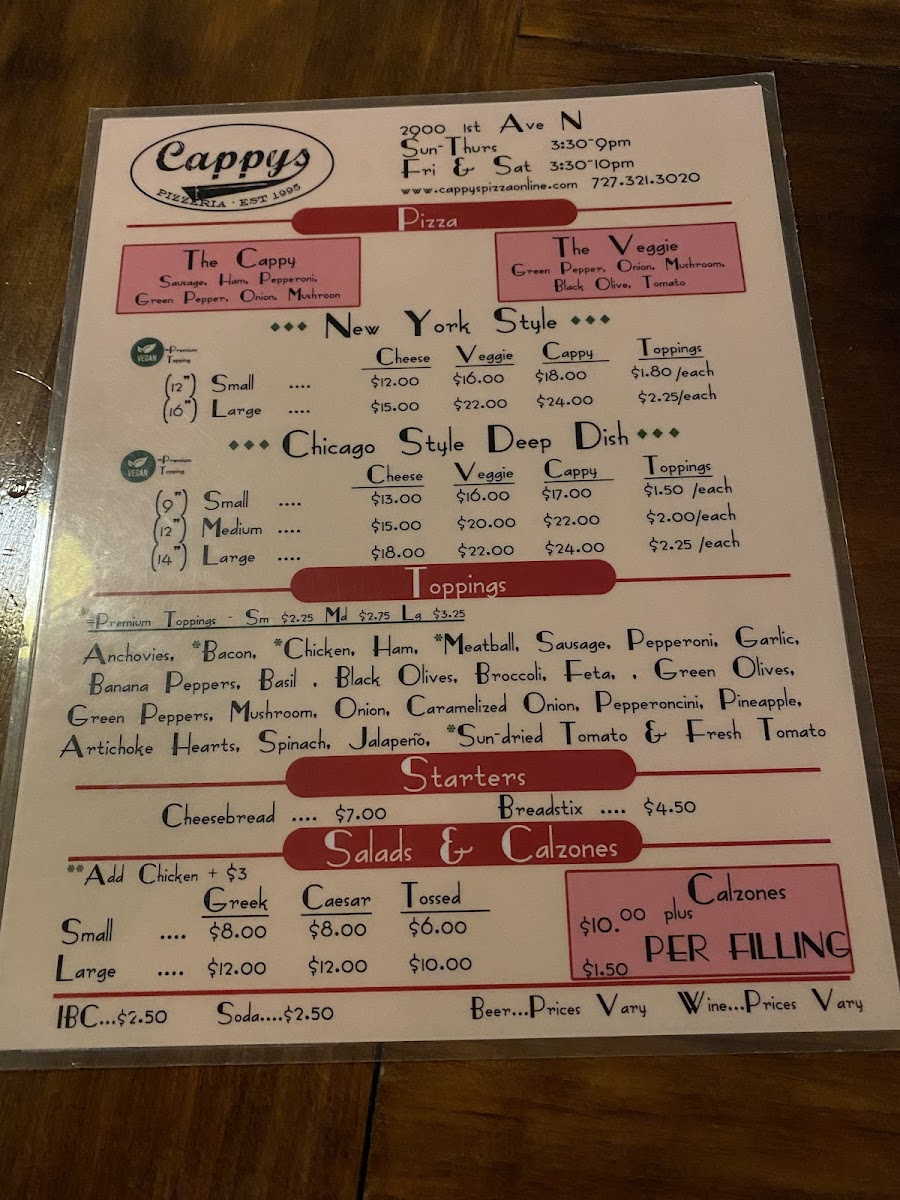 Cappys
PIZZERIA · EST 1995
2900 1st Ave N
Sun-Thurs 3:30-9pm
Fri & Sat 3:30-10pm
www.cappyspizzaonline.com 727.321.3020
Pizza
The Cappy
Sausage, Ham, Pepperoni,
Green Pepper, Onion, Mushroon
The Veggie
Green Pepper, Onion, Mushroom,
Black Olive, Tomato
New York Style
VEGAN =Premium
Topping
Cheese Veggie Cappy Toppings
(12") Small .... $12.00 $16.00 $18.00 $1.80 /each
(16") Large .... $15.00 $22.00 $24.00 $2.25/each
Chicago Style Deep Dish
VEGAN =Premium
Topping
Cheese Veggie Cappy Toppings
(9") Small .... $13.00 $16.00 $17.00 $1.50 /each
(12") Medium .... $15.00 $20.00 $22.00 $2.00/each
(14") Large .... $18.00 $22.00 $24.00 $2.25 /each
Toppings
*=Premium Toppings - Sm $2.25 Md $2.75 La $3.25
Anchovies, *Bacon, *Chicken, Ham, *Meatball, Sausage, Pepperoni, Garlic,
Banana Peppers, Basil , Black Olives, Broccoli, Feta, , Green Olives,
Green Peppers, Mushroom, Onion, Caramelized Onion, Pepperoncini, Pineapple,
Artichoke Hearts, Spinach, Jalapeño, *Sun-dried Tomato & Fresh Tomato
Starters
Cheesebread .... $7.00 Breadstix .... $4.50
Salads & Calzones
**Add Chicken + $3
Greek Caesar Tossed
Small .... $8.00 $8.00 $6.00
Large .... $12.00 $12.00 $10.00
Calzones
$10.00 plus
$1.50 PER FILLING
IBC...$2.50 Soda....$2.50 Beer...Prices Vary Wine...Prices Vary